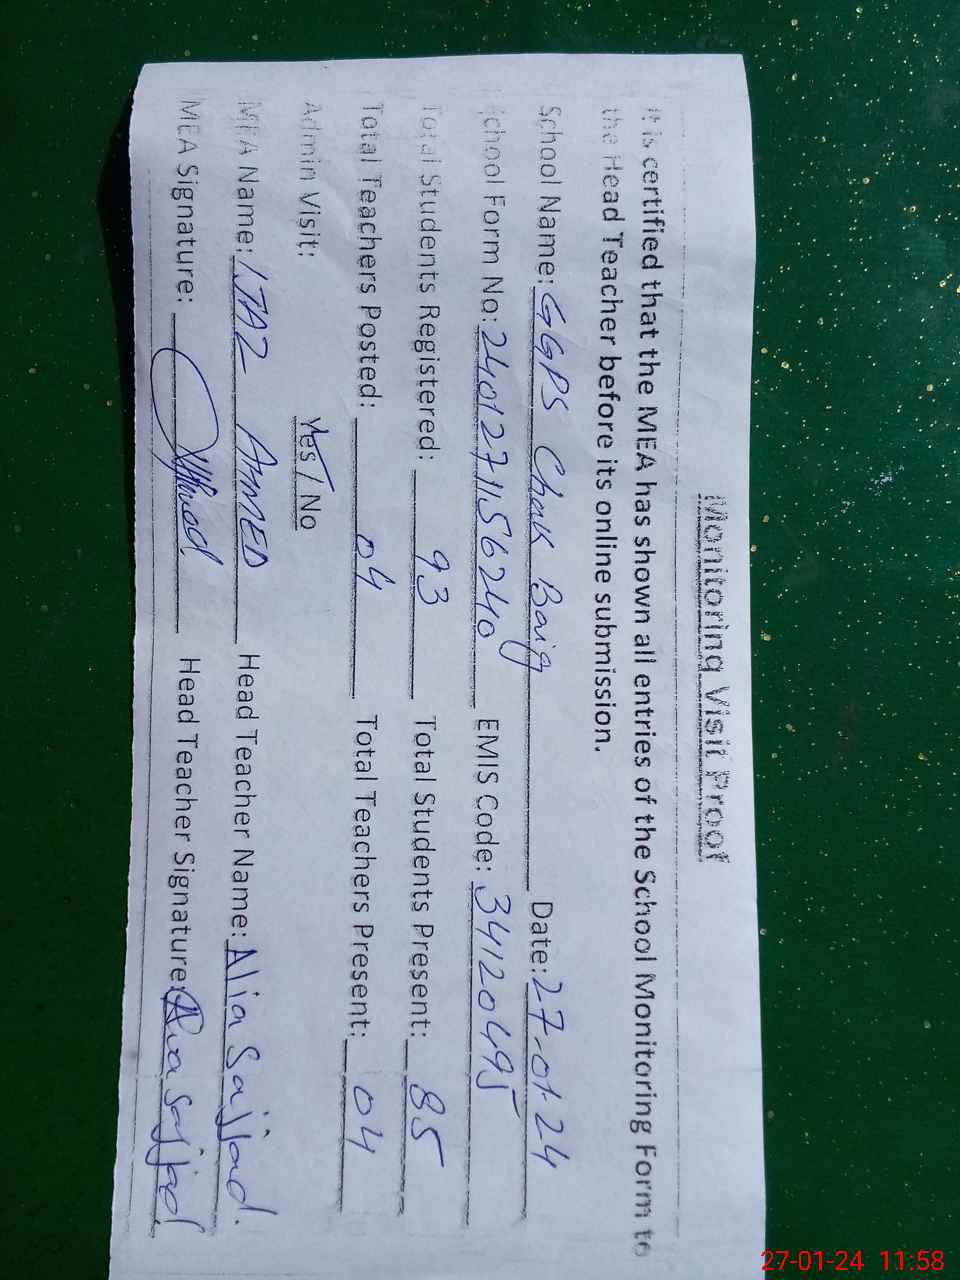 Monitoring Visit Proof
It is certified that the MEA has shown all entries of the School Monitoring Form to
the Head Teacher before its online submission.
School Name: GGPS Chak Baig Date: 27-01-24
School Form No: 2401271156240 EMIS Code: 34120495
Total Students Registered: 93 Total Students Present: 85
Total Teachers Posted: 04 Total Teachers Present: 04
Admin Visit: Yes / No
MEA Name: IJAZ AHMED Head Teacher Name: Alia Sajjad.
MEA Signature: Head Teacher Signature: Sajjad
27-01-24 11:58